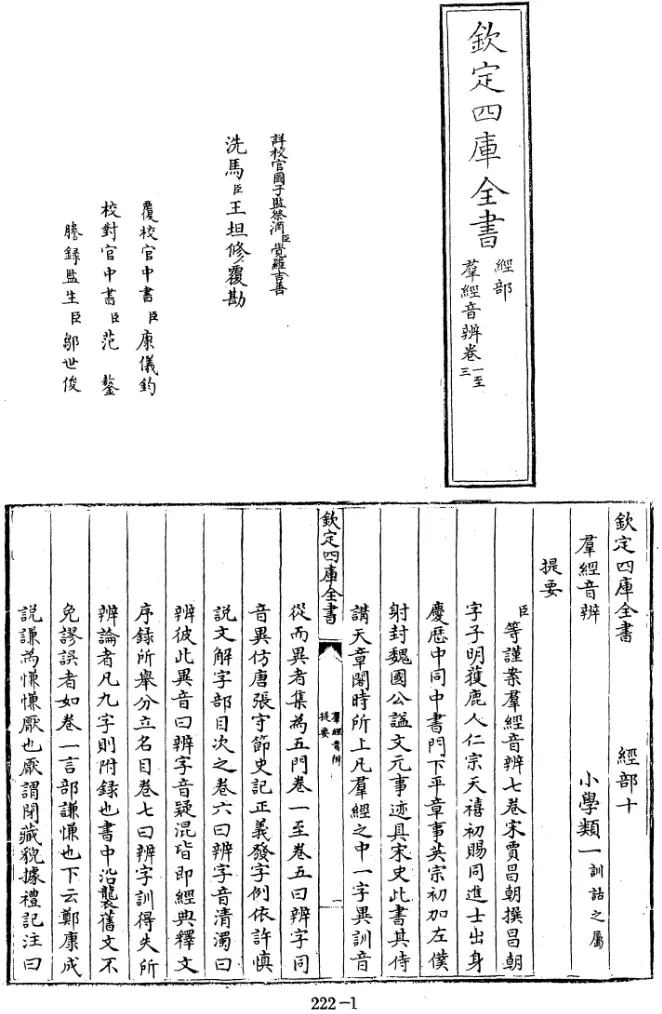 欽定四庫全書
經部
羣經音辨卷一至三
詳校官國子監祭酒臣覺羅吉善
洗馬臣王坦修覆勘
覆校官中書臣康儀鈞
校對官中書臣范鏊
謄錄監生臣鄒世俊
欽定四庫全書
經部十
羣經音辨
小學類一訓詁之屬
提要
臣等謹案羣經音辨七卷宋賈昌朝撰昌朝
字子明獲鹿人仁宗天禧初賜同進士出身
慶歴中同中書門下平章事英宗初加左僕
射封魏國公諡文元事迹具宋史此書其侍
講天章閣時所上凡羣經之中一字異訓音
欽定四庫全書
羣經音辨
提要
一
從而異者集為五門卷一至卷五曰辨字同
音異仿唐張守節史記正義發字例依許慎
說文解字部目次之卷六曰辨字音清濁曰
辨彼此異音曰辨字音疑混皆即經典釋文
序錄所舉分立名目卷七曰辨字訓得失所
辨論者凡九字則附録也書中沿襲舊文不
免謬誤者如卷一言部謙慊也下云鄭康成
說謙為慊慊厭也厭謂閉藏貌據禮記注曰
222-1